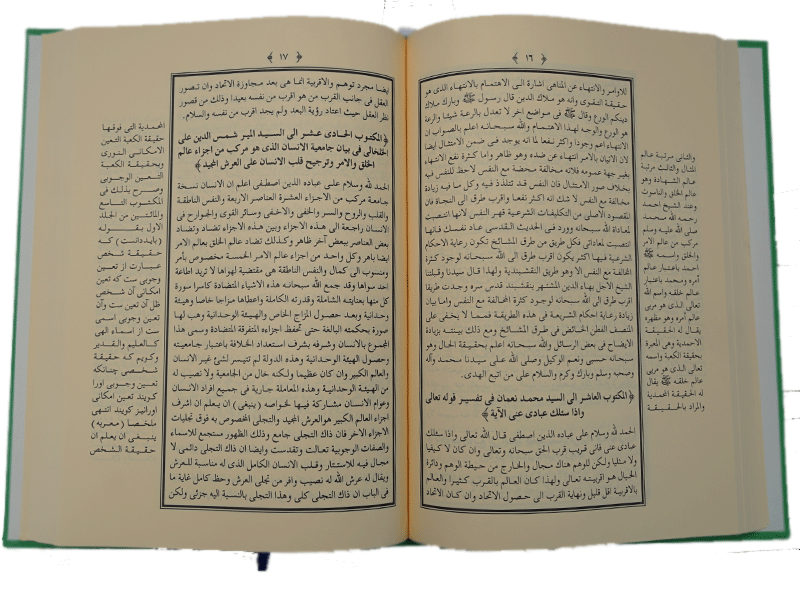 ﴿ ١٦ ﴾
للاوامر والانتهاء عن المناهى اشارة الى الاهتمام بالانتهاء الذى هو
حقيقة التقوى وانه هو ملاك الدين قال رسول ﷺ وبارك ملاك
دينكم الورع وقال ﷺ فى مواضع اخر لا تعدل بالرعة شيئا والرعة
هو الورع والوجه لهذا الاهتمام والله سبحانه اعلم بالصواب ان
الانتهاء اعم وجودا واكثر نفعا لما انه يوجد فى ضمن الامتثال ايضا
لان الاتيان بالامر انتهاء عن ضده وهو ظاهر واما كثرة نفع الانتهاء
بغير جهة عمومه فلانه مخالفة محضة مع النفس لاحظ للنفس فيه
بخلاف صور الامتثال فان النفس قد تتلذذ فيه وكل ما فيه زيادة
مخالفة مع النفس لا شك انه اكثر نفعا واقرب طرق الى النجاة فان
المقصود الاصلى من التكليفات الشرعية قهر النفس لانها انتصبت
لمعاداة الله سبحانه وورد فى الحديث القدسى عاد نفسك فانها
انتصبت لمعاداتى فكل طريق من طرق المشائخ تكون رعاية الاحكام
الشرعية فيها اكثر يكون اقرب طرق الى الله سبحانه لوجود كثرة
المخالفة مع النفس الا وهو طريق النقشبندية ولهذا قال سيدنا وقبلتنا
الشيخ الاجل بهاء الدين المشتهر بنقشبند قدس سره وجدت طريقا
اقرب طرق الى الله سبحانه لوجود كثرة المخالفة مع النفس واما بيان
زيادة رعاية احكام الشريعة فى هذه الطريقة فمما لا يخفى على
المنصف الفطن الخائض فى طرق المشائخ ومع ذلك بينته بزيادة
الايضاح فى بعض الرسائل والله سبحانه اعلم بحقيقة الحال وهو
سبحانه حسبى ونعم الوكيل وصلى الله على سيدنا محمد وآله
وصحبه وسلم وبارك وكرم والسلام على من اتبع الهدى.
﴿المكتوب العاشر الى السيد محمد نعمان فى تفسير قوله تعالى
واذا سئلك عبادى عنى الآية﴾
الحمد لله وسلام على عباده الذين اصطفى قال الله تعالى واذا سئلك
عبادى عنى فانى قريب قرب الحق سبحانه وتعالى وان كان لا كيفيا
ولا مثليا ولكن للوهم هناك مجال والخارج من حيطة الوهم ودائرة
الخيال هو اقربيته تعالى ولهذا كان العالم بالقرب كثيرا والعالم
بالاقربية اقل قليل ونهاية القرب الى حصول الاتحاد وان كان الاتحاد
والثانى مرتبة عالم
المثال والثالث مرتبة
عالم الشهادة وهو
عالم الخلق والناسوت
وعند الشيخ احمد
رحمه الله محمد
صلى الله عليه وسلم
مركب من عالم الامر
والخلق واسمه ﷺ
احمد باعتبار عالم
امره ومحمد باعتبار
عالم خلقه واسم الله
تعالى الذى هو مربى
عالم امره وهو مظهره
يقال له الحقيقة
الاحمدية وهى المعبرة
بحقيقة الكعبة واسمه
تعالى الذى هو مربى
عالم خلقه ﷺ يقال
له الحقيقة المحمدية
والمراد بالحقيقة
﴿ ١٧ ﴾
ايضا مجرد توهم والاقربية انما هى بعد مجاوزة الاتحاد وان تصور
العقل فى جانب القرب من هو اقرب من نفسه بعيدا وذلك من قصور
نظر العقل حيث اعتاد رؤية البعد ولم يجد اقرب من نفسه والسلام.
﴿المكتوب الحادى عشر الى السيد المير شمس الدين على
الخلخالى فى بيان جامعية الانسان الذى هو مركب من اجزاء عالم
الخلق والامر وترجيح قلب الانسان على العرش المجيد﴾
الحمد لله وسلام على عباده الذين اصطفى اعلم ان الانسان نسخة
جامعة مركب من الاجزاء العشرة العناصر الاربعة والنفس الناطقة
والقلب والروح والسر والخفى والاخفى وسائر القوى والجوارح فى
الانسان راجعة الى هذه الاجزاء وبين هذه الاجزاء تضاد وتضاد
بعض العناصر ببعض آخر ظاهر وكذلك تضاد عالم الخلق بعالم الامر
ايضا باهر وكل واحد من اجزاء عالم الامر الخمسة مخصوص بأمر
ومنسوب الى كمال والنفس الناطقة هى مقتضية لهواها لا تريد اطاعة
احد سواها وقد جمع الله سبحانه هذه الاشياء المتضادة كاسرا سورة
كل منها بعنايته الشاملة وقدرته الكاملة واعطاها مزاجا خاصا وهيئة
وحدانية وبعد حصول المزاج الخاص والهيئة الوحدانية وهب لها
صورة بحكمته البالغة حتى تحفظ اجزاءه المتفرقة المتضادة وسمى هذا
المجموع بالانسان وشرفه بشرف استعداد الخلافة باعتبار جامعيته
وحصول الهيئة الوحدانية وهذه الدولة لم تتيسر لشئ غير الانسان
والعالم الكبير وان كان عظيما ولكنه خال من الجامعية ولا نصيب له
من الهيئة الوحدانية وهذه المعاملة جارية فى جميع افراد الانسان
وعوام الانسان مشاركة فيها لخواصه (ينبغى) ان يعلم ان اشرف
اجزاء العالم الكبير هو العرش المجيد والتجلى المخصوص به فوق تجليات
الاجزاء الأخر فان ذاك التجلى جامع وذلك الظهور مستجمع للاسماء
والصفات الوجوبية تعالت وتقدست وايضا ان ذاك التجلى دائمى لا
مجال فيه للاستتار وقلب الانسان الكامل الذى له مناسبة للعرش
ويقال له عرش الله له نصيب وافر من تجلى العرش وحظ كامل غاية ما
فى الباب ان ذاك التجلى كلى وهذا التجلى بالنسبة اليه جزئى ولكن
المحمدية التى فوقها
حقيقة الكعبة التعين
الامكانى النورى
وبحقيقة الكعبة
التعين الوجوبى
وصرح بذلك فى
المكتوب التاسع
والمائتين من الجلد
الاول بقوله
(بايددانست) كه
حقيقة شخص
عبارت از تعين
وجوبى ست كه تعين
امكانى آن شخص
ظل آن تعين ست وآن
تعين وجوبى اسمى
ست از اسماء الهى
كالعليم والقدير
وكويم كه حقيقة
شخصى چنانكه
تعين وجوبى اورا
كويند تعين امكانى
اورانيز كويند انتهى
ملخصا (معربه)
ينبغى ان يعلم ان
حقيقة الشخص